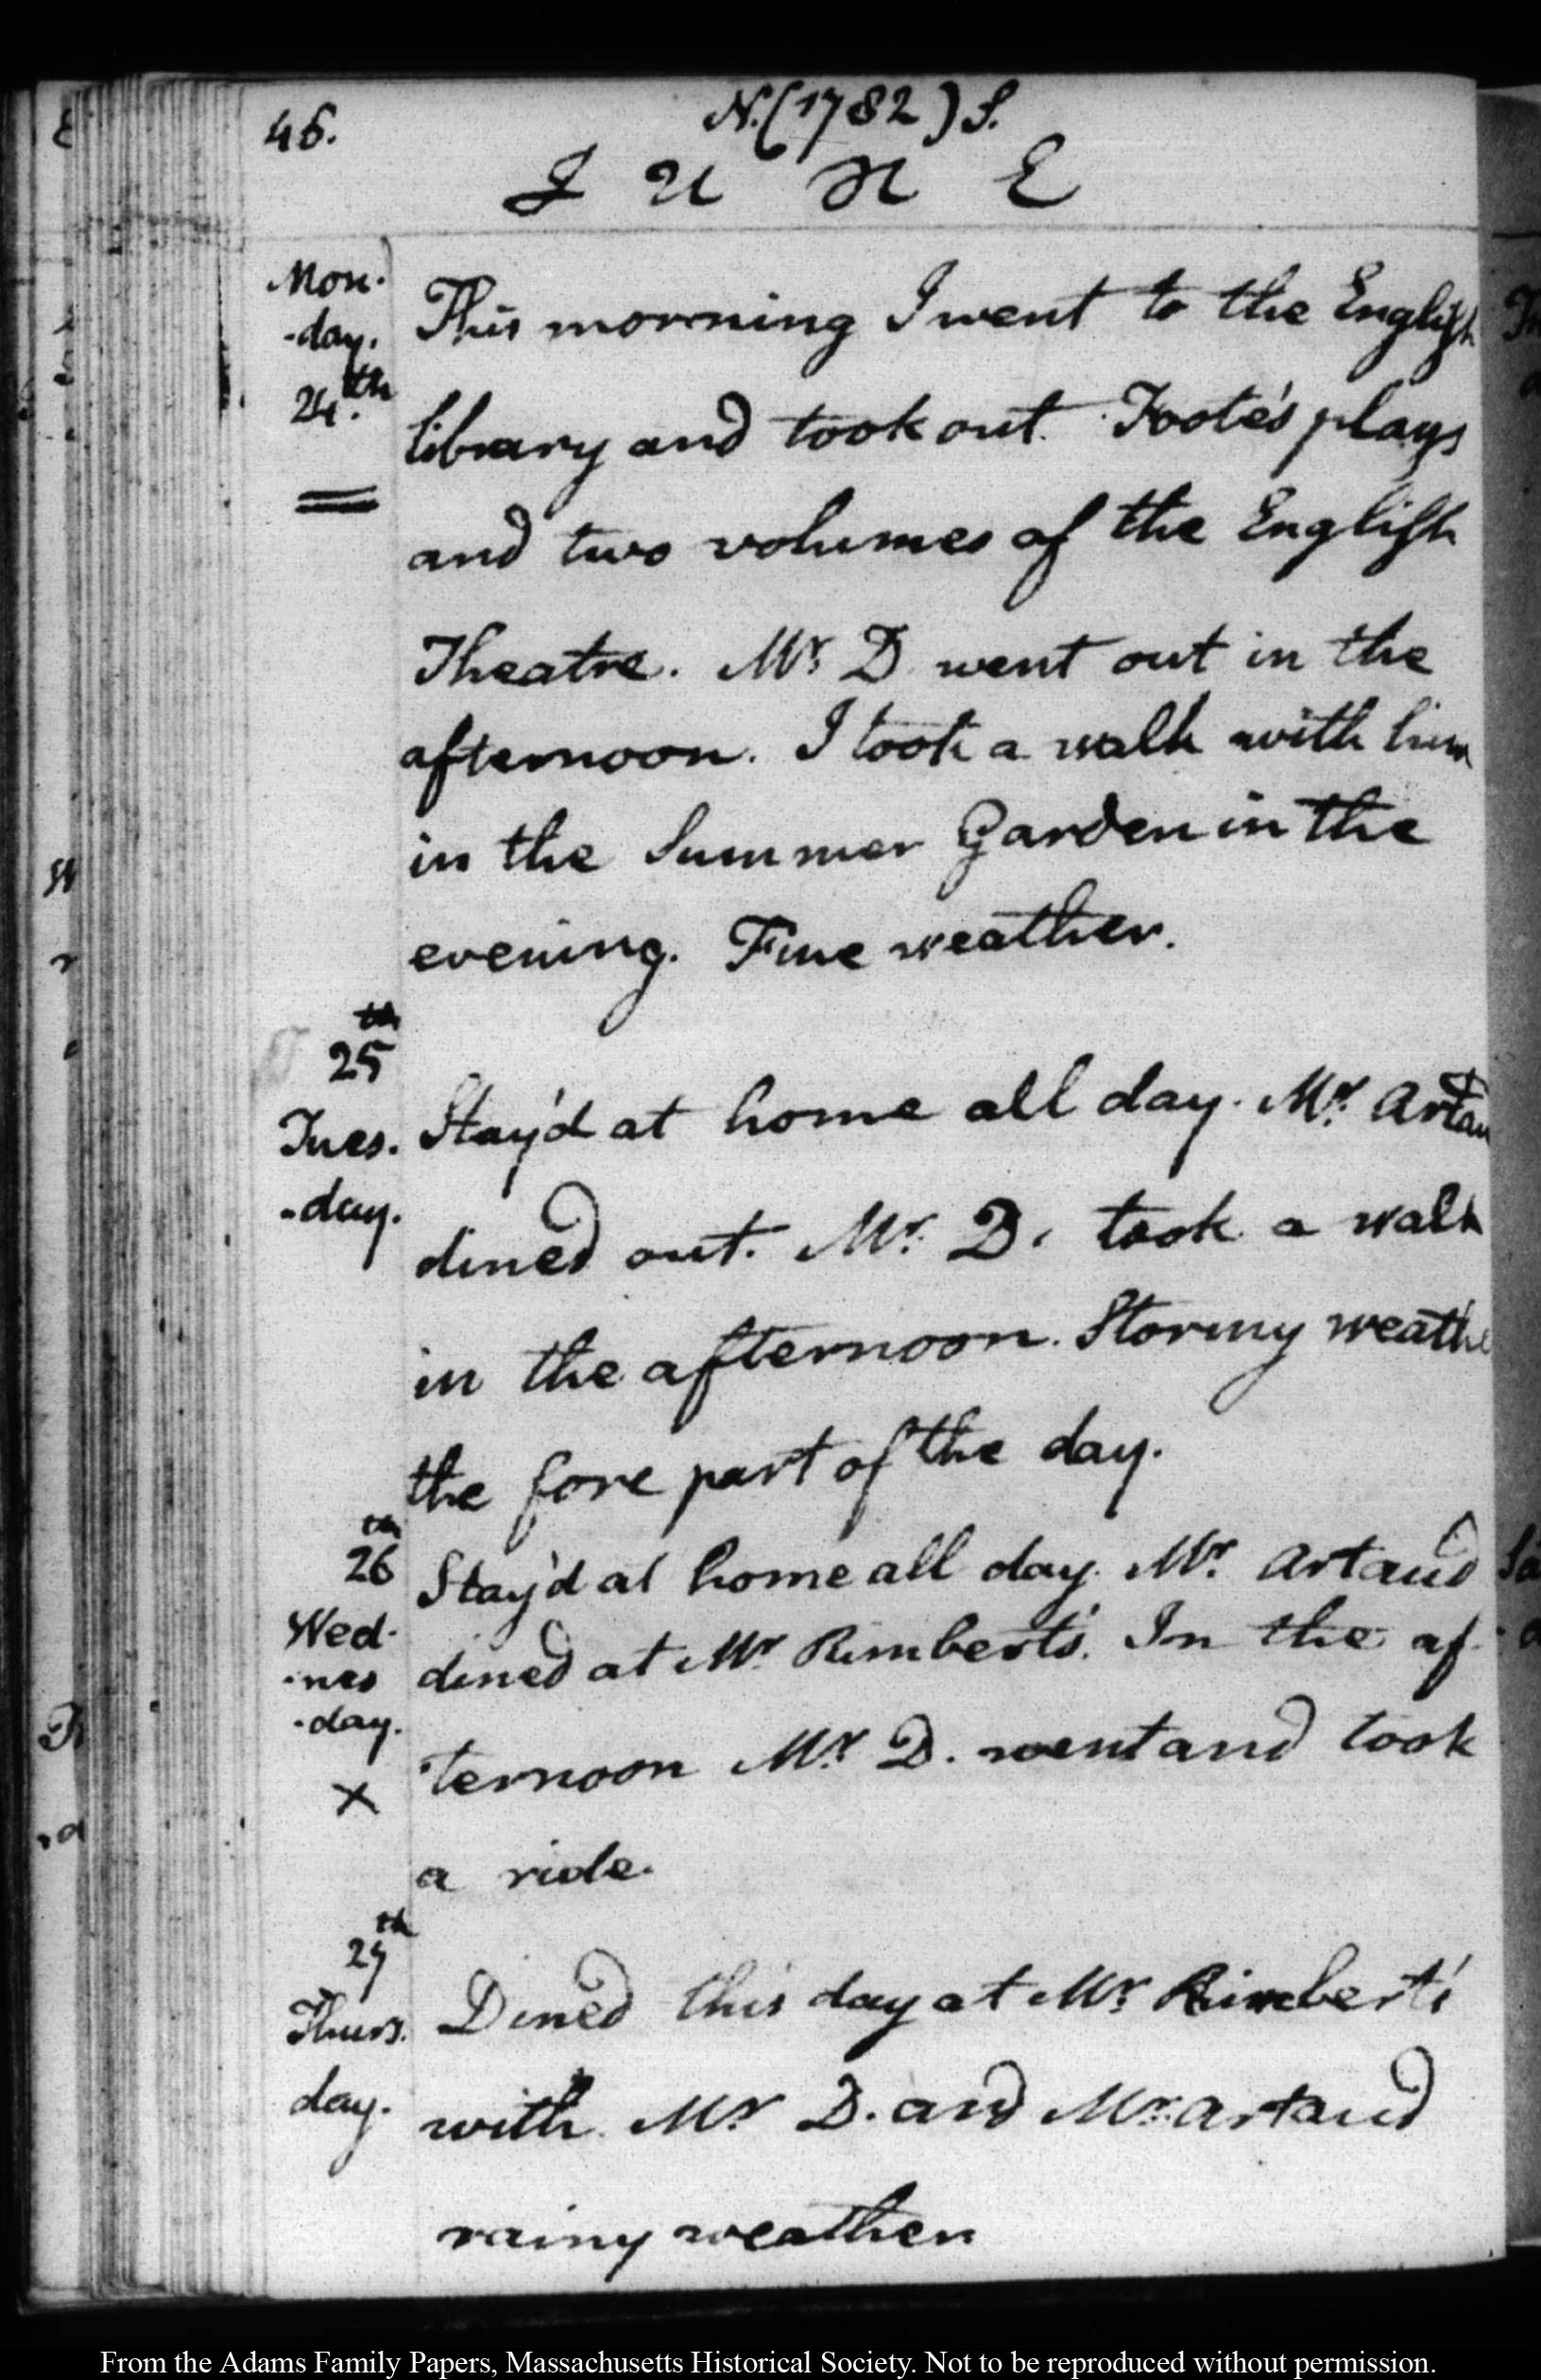 46.
N. (1782) S.
J U N E
Mon-
-day.
24.th
This morning I went to the English
library and took out Foote's plays
and two volumes of the English
Theatre. Mr. D went out in the
afternoon. I took a walk with him
in the Summer Garden in the
evening. Fine weather.
25th
Tues.
-day.
Stay'd at home all day. Mr. Artau
dined out. Mr. D. took a walk
in the afternoon. Stormy weathe
the fore part of the day.
26th
Wed-
-nes
-day.
x
Stay'd at home all day. Mr. Artaud
dined at Mr. Rimbert's. In the af-
ternoon Mr. D. went and took
a ride.
27th
Thurs.
day.
Dined this day at Mr. Rimbert's
with Mr. D. and Mr. Artaud
rainy weather
From the Adams Family Papers, Massachusetts Historical Society. Not to be reproduced without permission.